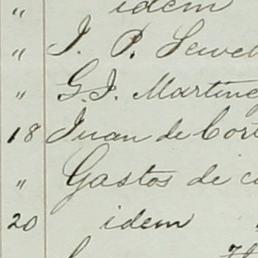 " idem
" J. P. Sewel
" G. J. Martine
18 Juan de Cort
" Gastos de c
20 idem "